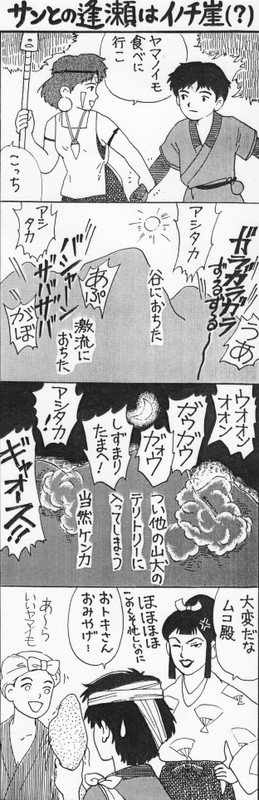 サンとの逢瀬はイノチ崖(?)
ヤマノイモ
食べに
行こ
こっち
ガラガラガラ
ずるずるずる
うあ
アシタカ
谷におちた
アシ
タカ
バシャーン
ザバザバ
あぷ
がぼ
激流に
おちた
ウオオン
オオン
ガウガウ
ガォウ
しずまり
たまへ!
アシタカ
!!
ギャオース!!
つい他の山犬の
テリトリーに
入ってしまう
当然ケンカ
大変だな
ムコ殿
ほほほほ
このくそ忙しいのに
おトキさん
おみやげ!
あ〜ら
いいヤマイモ